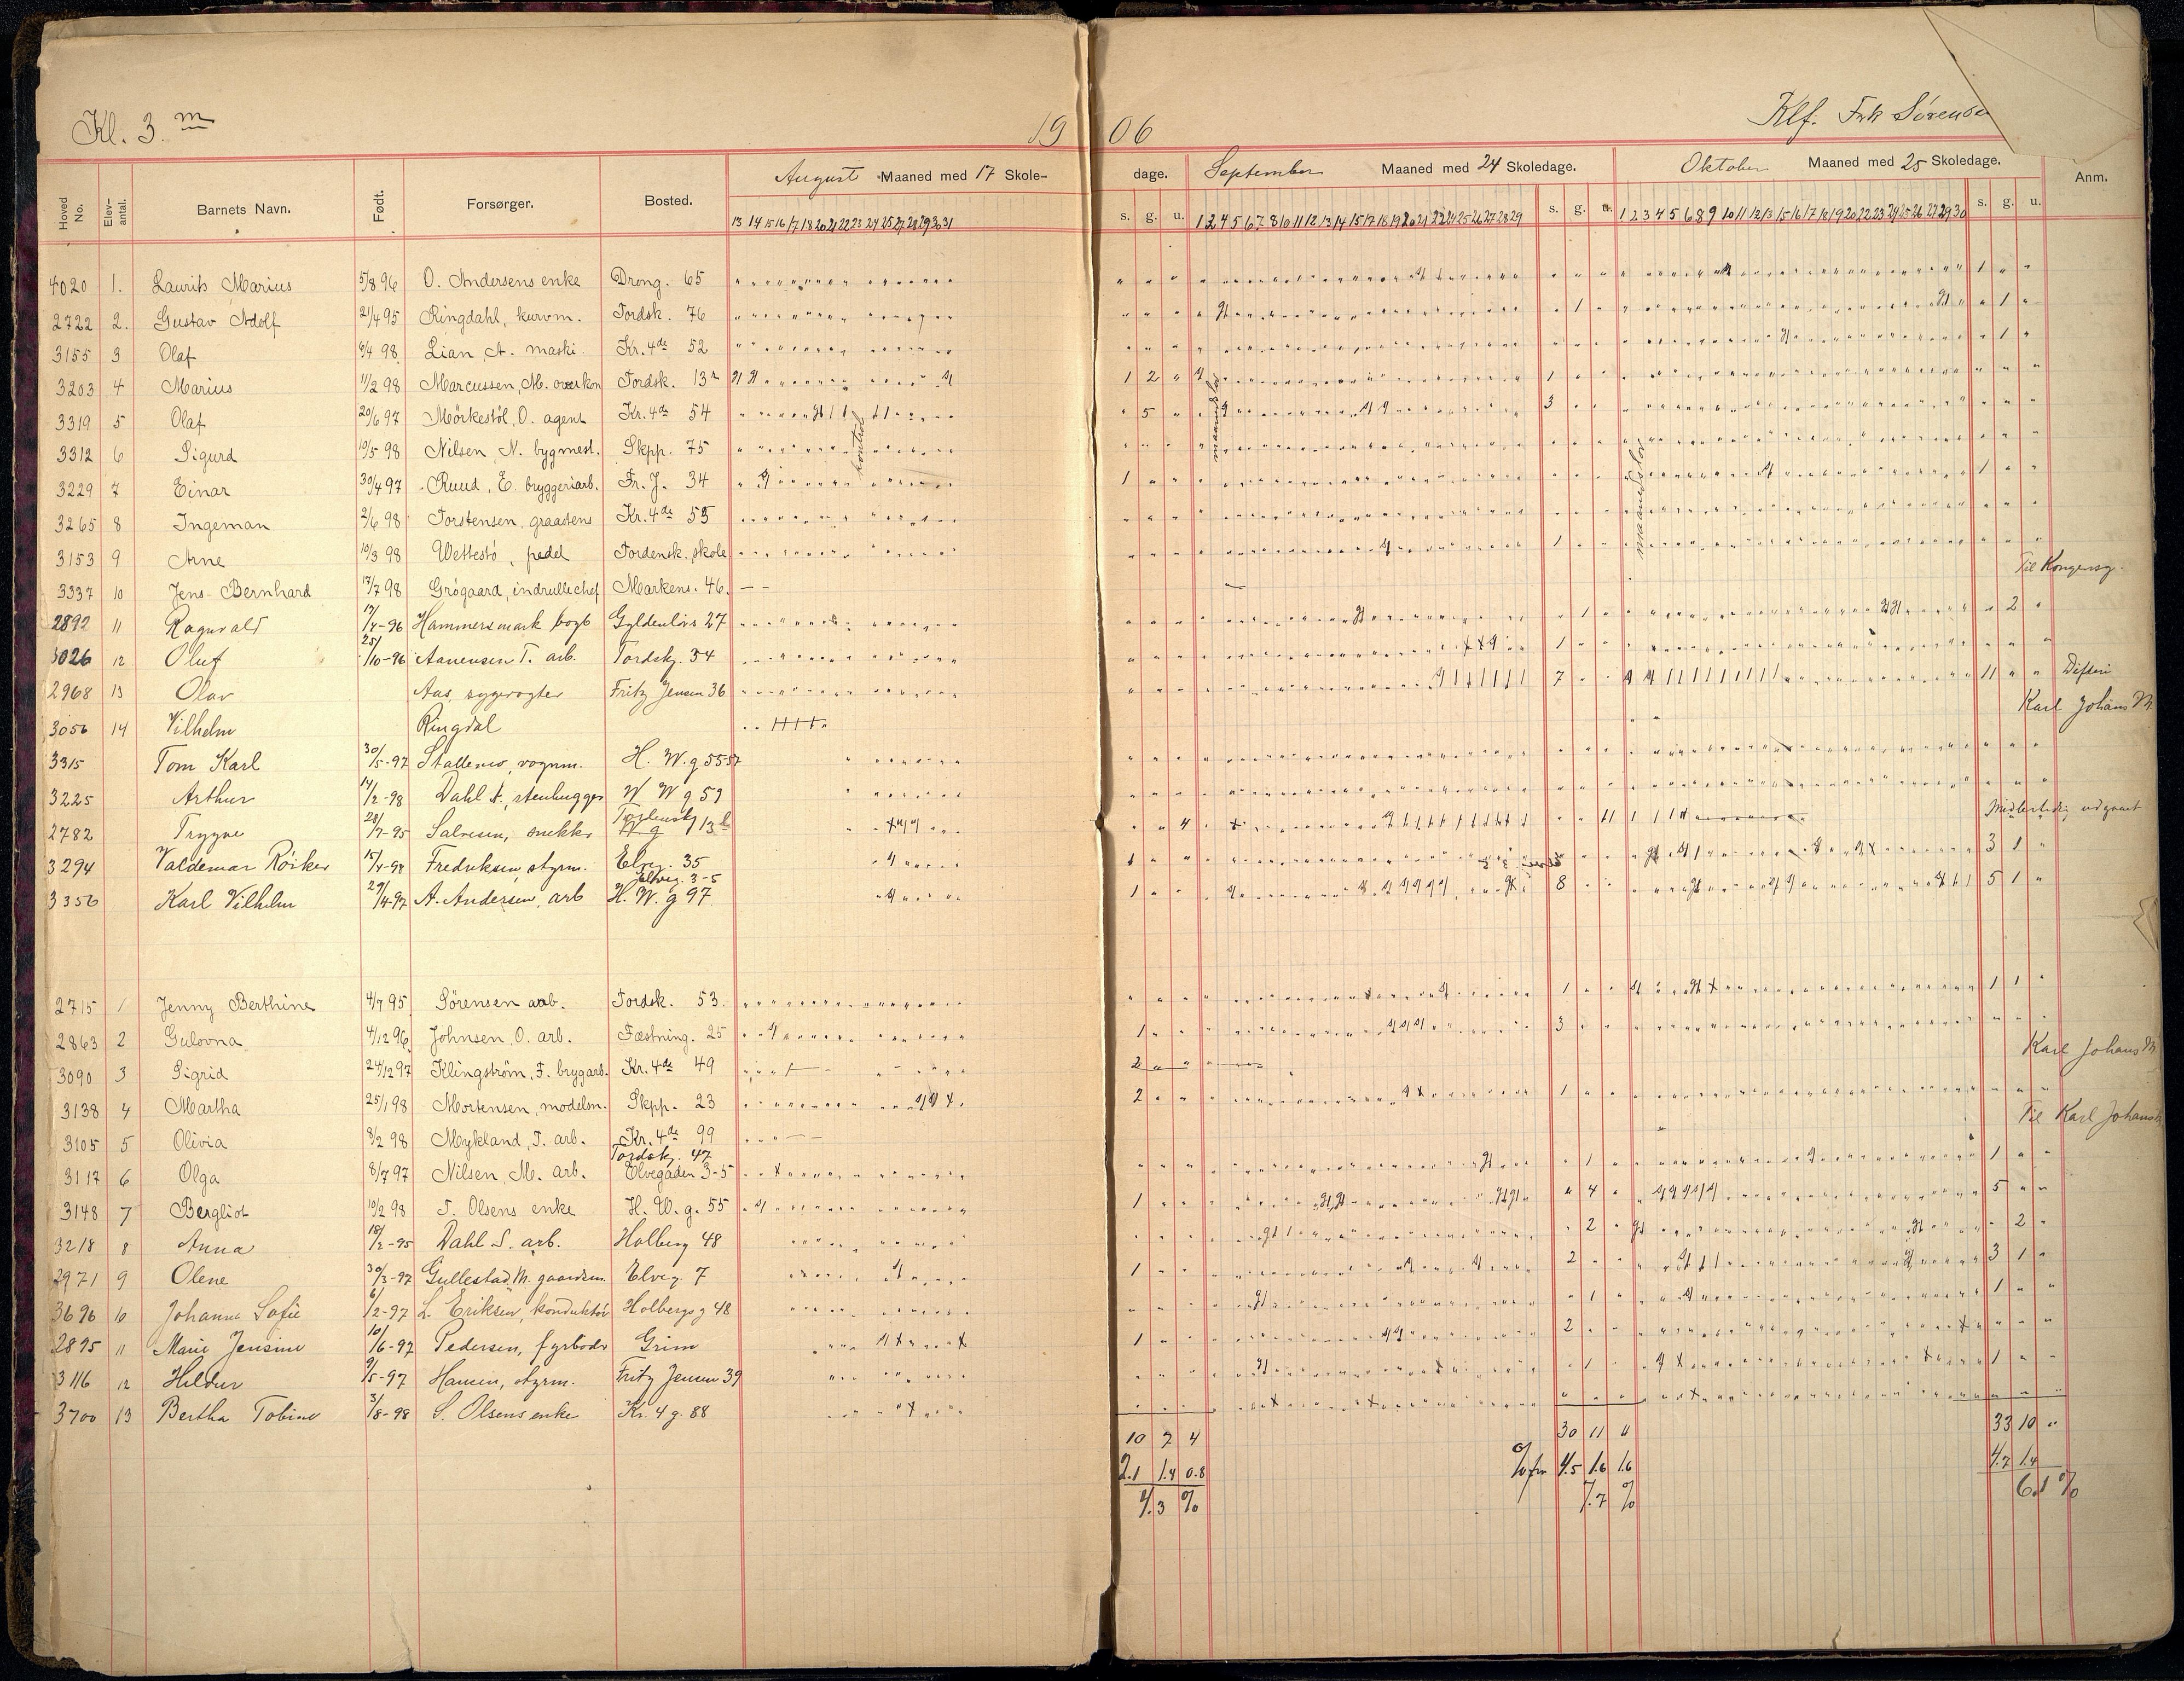 Kl. 3 m
19 06
Klf. Frk Sørensen
Hoved No. Elev-antal. Barnets Navn. Født. Forsørger. Bosted. August Maaned med 17 Skole-dage. September Maaned med 24 Skoledage. Oktober Maaned med 25 Skoledage. Anm.
s. g. u. s. g. u. s. g. u.
4020 1. Laurits Marius 5/8 96 O. Andersens enke Drong. 65
2722 2. Gustav Adolf 21/4 95 Ringdahl, kurvm. Tordsk. 76
3155 3 Olaf 9/4 98 Lian A. maski. Kr. 4de 52
3203 4 Marius 11/2 98 Marcussen, M. Tordsk. 13 1 2
3319 5 Olaf 20/6 97 Mørkestøl, O. agent Kr. 4de 54 5 3
3312 6 Sigurd 10/5 98 Nilsen, N. bygmest. Skpp. 75
3229 7 Einar 30/4 97 Ruud, E. bryggeriarb. Fr. J. 34 1
3265 8 Ingeman 2/6 98 Torstensen, graastens Kr. 4de 55
3153 9 Arne 10/3 98 Wettestø, pedel Tordensk. skole 1
3337 10 Jens Bernhard 17/7 98 Grøgaard, indrullechef Markens. 46. Til Kongensg.
2892 11 Ragnvald 17/4-96 Hammersmark bogb Gyldenløvs 27 1 2
3026 12 Oluf 25/10-96 Aanensen T. arb. Tordskj. 34 1
2968 13 Olav Aas, sygevogter Fritz Jensen 36 7 11 Difteri
3056 14 Vilhelm Ringdal Karl Johans
3315 Tom Karl 30/5-97 vognm. H. W. g 55-57
3225 Arthur 14/2-98 Dahl stenhugger W W g 59
2782 Trygve 28/7-95 Salvesen, snekker Tordensk 13 4 11 Midlertidig udgaaet
3294 Valdemar Röiker 15/4-98 Fredriksen styrm. Elveg. 35 1 3 1
3356 Karl Vilhelm 29/4-97 A. Andersen, arb Elveg. 3-5 H. W. g 97 1 8 5 1
kontrol
maanedslov
maanedslov
2715 1 Jenny Berthine 4/7 95 Sörensen arb. Tordsk. 53. 1 1 1
2863 2 Gulovna 4/12 96 Johnsen, O. arb. Fæstning. 25 1 3
3090 3 Sigrid 24/12 97 Klingström, F. brygarb. Kr. 4de 49 2 Karl Johans
3138 4 Martha 25/1 98 Mortensen, modelsn. Skpp. 23 2 1
3105 5 Olivia 8/2 98 Mykland, T. arb. Kr. 4de 99 Til Karl Johans
3117 6 Olga 8/7 97 Nilsen, M. arb. Tordskj. 47 Elvegaden 3-5 1 1
3148 7 Bergliot 10/2 98 T. Olsens enke H. W. g. 55 1 4 5
3218 8 Anna 18/2-95 Dahl S. arb. Holberg 48 2 2
2971 9 Olene 30/3-97 Gullestad, M. gaardsm. Elveg. 7 1 2 3 1
3696 10 Johanne Sofie 6/2-97 L. Eriksen, konduktør Holbergs g 48 1 1
2895 11 Marie Jensine 10/6-97 Pedersen, fyrbøder Grim 1 2
3116 12 Hildur 9/5-97 Hansen, styrm. Fritz Jensen 39 1 1
3700 13 Bertha Tobine 3/8-98 S. Olsens enke Kr. 4 g. 88
10 7 4 30 11 11 33 10
2.1 1.4 0.8 4.5 1.6 1.6 4.7 1.4
4.3 % 7.7 % 6.1 %